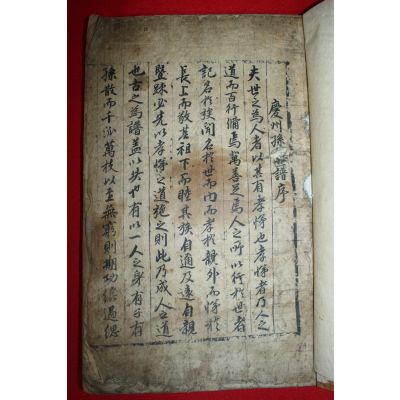 慶州孫氏譜序
夫世之為人者以其有孝悌也孝悌者乃人之
道而百行備焉萬善足焉人之所以行於世者
記名於族聞名於世而內而孝於親外而悌於
長上而敬其祖下而睦其族自適及遠自親
暨踈必先以孝悌之道施之則此乃成人之道
也古之為譜盖以此也有以一人之身有子有
孫散而千派萬枝以至無窮則期功緦過緦